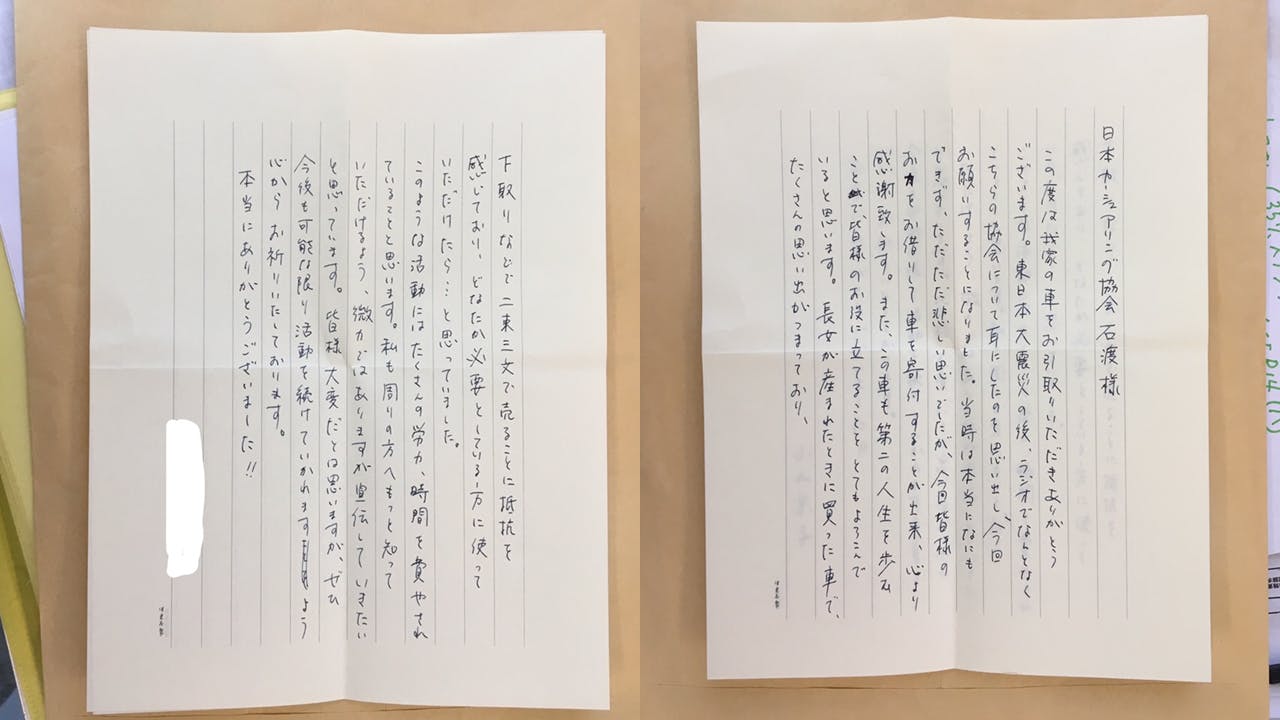 日本カーシェアリング協会 石渡様
この度は我家の車をお引取りいただきありがとう
ございます。東日本大震災の後、ラジオでなんとなく
こちらの協会について耳にしたのを思い出し、今回
お願いすることになりました。当時は本当になにも
できず、ただただ悲しい思いでしたが、今回皆様の
お力をお借りして車を寄付することが出来、心より
感謝致します。また、この車も第二の人生を歩む
ことで、皆様のお役に立てることをとてもよろこんで
いると思います。長女が産まれたときに買った車で、
たくさんの思い出がつまっており、
下取りなどで二束三文で売ることに抵抗を
感じており、どなたか必要としている方に使って
いただけたら…と思っていました。
このような活動にはたくさんの労力、時間を費やされ
ていることと思います。私も周りの方へもっと知って
いただけるよう、微力ではありますが宣伝していきたい
と思っています。皆様大変だとは思いますが、ぜひ
今後も可能な限り活動を続けていかれますよう
心からお祈りいたしております。
本当にありがとうございました!!